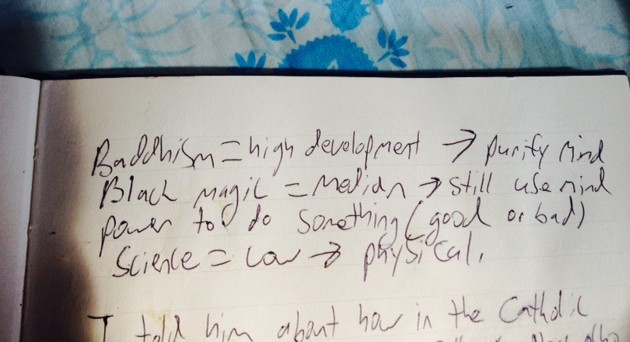 Baddhism = high development → purify mind
Black magic = Median → still use mind
power to do something (good or bad)
Science = Low → physical.
I told him about how in the Catholic